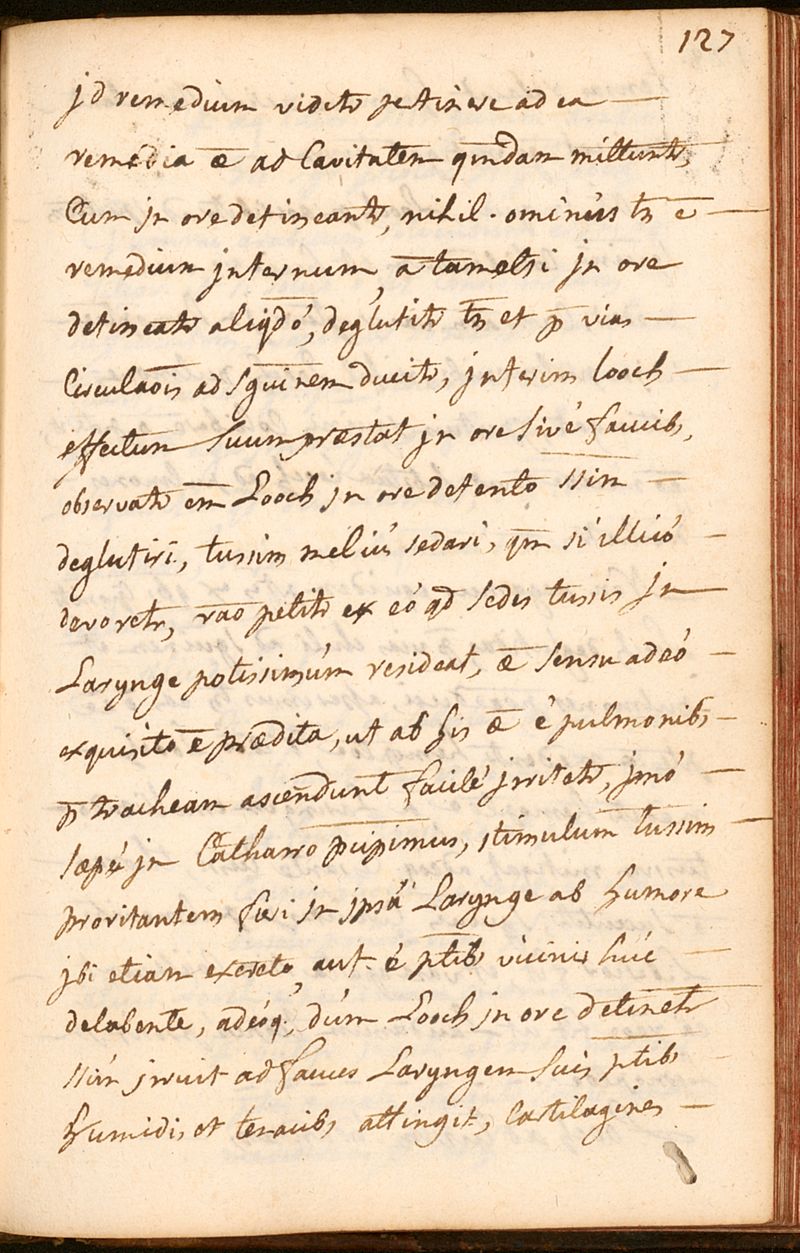 127
jd remedium videtr petinere ad ea —
remedia æ ad Cavitatem qmdam mittuntr,
Cum jn ore detineantr, nihil ominús tn ē —
remedium jnternum, ā tametsi jn ore
detineatr aliqdó, deglutitr tn et p̄ vias —
Circulaōis ad sguinem ducitr, jnterim looch —
effectum suum præstat jn ore sivé faucib,
observatr em̄ Looch jn ore detento ssim —
deglutiri, tussim meliús sedari, qm si illicó —
devoretr, rāo petitr ex eó qd sedes tussis jn
Larynge potissimúm resideat, æ sensu adeó —
exquisito ē prædita, ut ab his æ é pulmonib —
p̄ tracheam ascendunt facilé jrritetr, jmó —
sæpé jn Catharro pcipimus, stimulum tussim —
proritantem fieri jn jpsâ Larynge ab humore
jbi etiam excreto, aut é ptib vicinis húc —
delabente, adeóq, dúm Looch jn ore detinetr
ssim jrruit ad fauces Laryngem suis ptib —
humidis et tenacib attingit, Cartilagines —